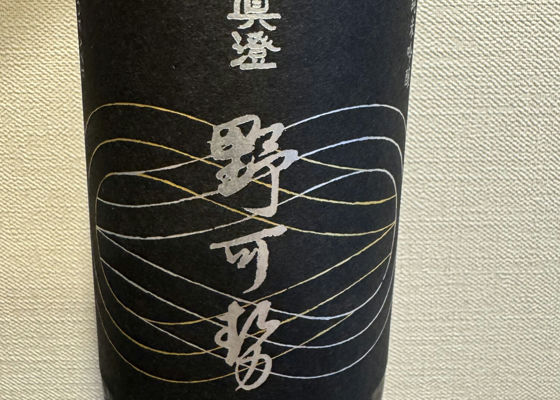 眞澄
野可勢